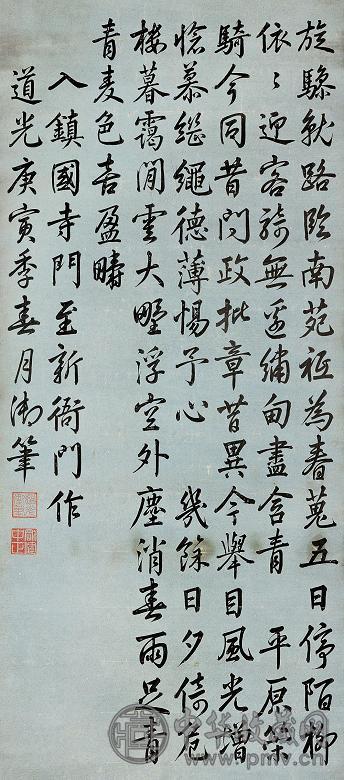 旋驂就路臨南苑祗為春蒐五日停陌柳
依〻迎客騎無邊繡甸盡含青 平原策
騎今同昔問政批章昔異今舉目風光增
愴慕繼繩德薄惕予心 幾餘日夕倚危
樓暮靄閒雲大墅浮空外塵消春雨足青
青麦色喜盈疇
入鎮國寺門至新衙門作
道光庚寅季春月御筆
中华收藏网
www.pmv.cn